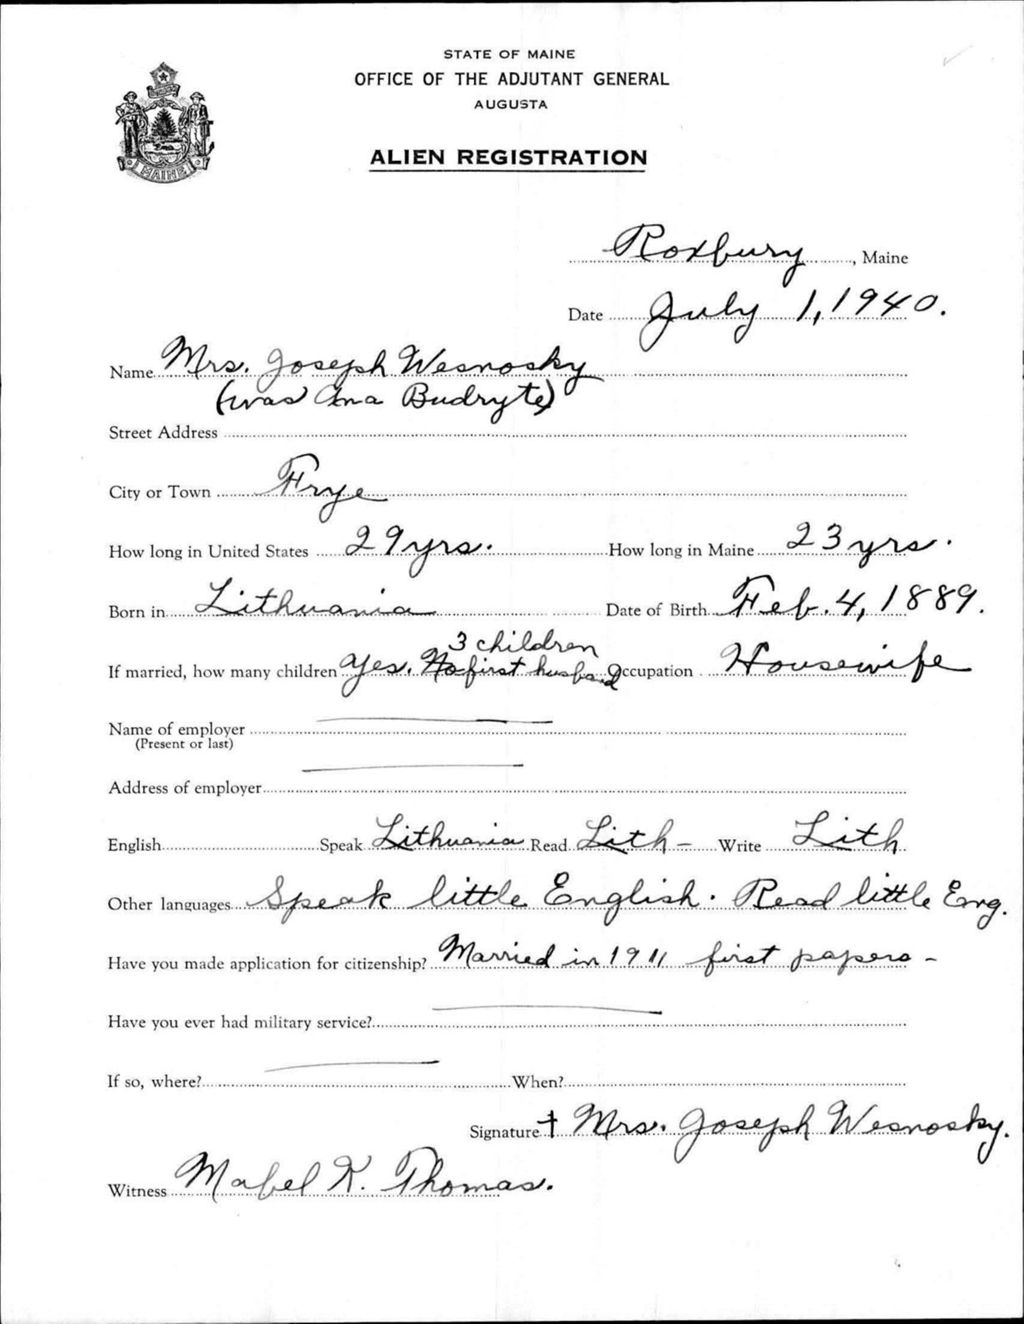 STATE OF MAINE
OFFICE OF THE ADJUTANT GENERAL
AUGUSTA
ALIEN REGISTRATION
MAINE
Roxbury, Maine
Date July 1, 1940.
Name Mrs. Joseph Wesnosky
(was Ana Budryte)
Street Address
City or Town Frye
How long in United States 29 yrs. How long in Maine 23 yrs.
Born in Lithuania Date of Birth Feb. 4, 1889.
3 children
If married, how many children Yes. No first husband Occupation Housewife
Name of employer
(Present or last)
Address of employer
English Speak Lithuania Read Lith - Write Lith
Other languages Speak little English. Read little Eng.
Have you made application for citizenship? Married in 1911 first papers -
Have you ever had military service?
If so, where? When?
Signature Mrs. Joseph Wesnosky.
Witness Mabel K. Thomas.